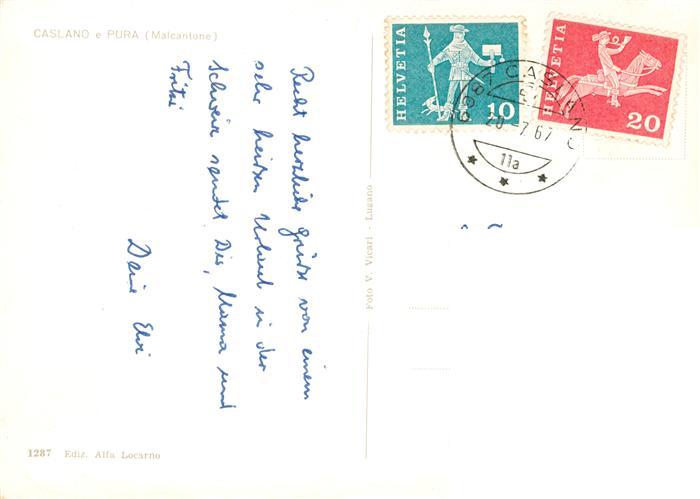 CASLANO e PURA (Malcantone)
Recht herzliche Grüsse von einem
sehr heissen Urlaub in der
Schweiz sendet Dir, Mama und
Fritzi
Deine Elvi
1287 Ediz. Alfa Locarno
Foto V. Vicari - Lugano
HELVETIA
10
HELVETIA
20
CASLANO
-7.67
11a